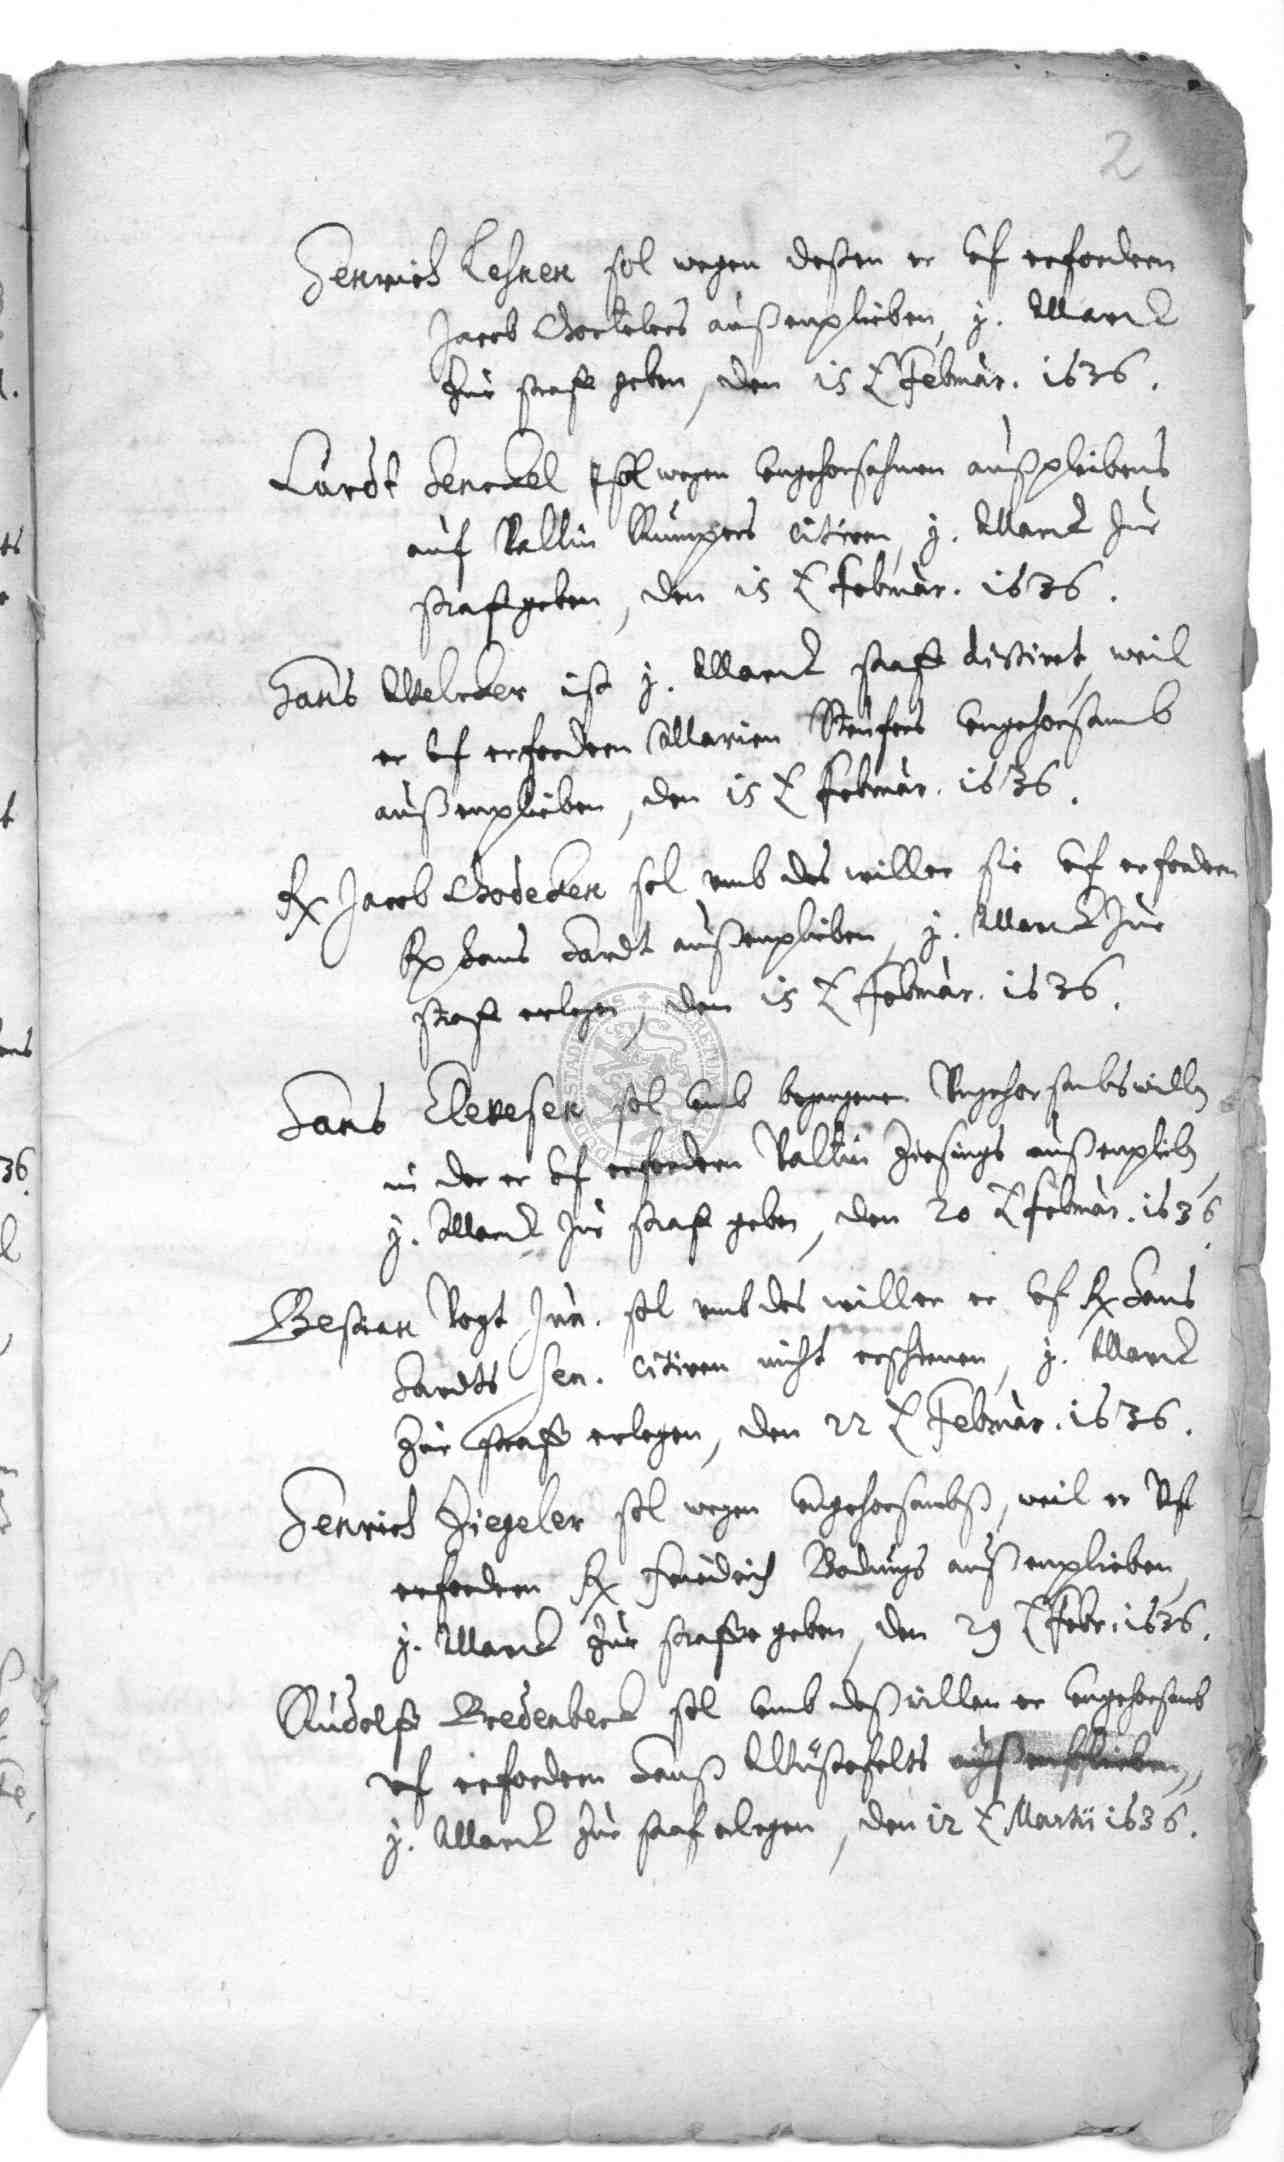 2
Henrich Lesner sol wegen deßen er vf erfordern
Jacob Goekelers außenplieben, j. Marck
Zur straff geben, den 15 t Februar. 1636.
Curdt Henckel sol wegen vngehorsahmen außpleibens
auf Valtin Rumpers citiren, j. Marck Zur
straf geben, den 15 t Februar. 1636.
Hans Welcker ist j. Marck straff dictiret, weil
er vf erfordern Marien Steufers vngehorsamb
außenplieben, den 15 t Februar. 1636.
Jacob Gödeken sol vmb des willen sie vf erfordern
Hans Hardt außenplieben, j. Marck Zur
straff erlegen, den 15 t Februar. 1636.
Hans Clevesen sol vmb begangenen Vngehorsambs willen
in der er vf erfordern Valtin Ziesings außenplieben,
j. Marck Zur straff geben, den 20 t Februar. 1636.
Bestian Vogt Jun. sol vmb des willen er vf Hans
Hardts sen. citiren nicht erschienen, j. Marck
Zur straff erlegen, den 22 t Februar. 1636.
Henrich Ziegeler sol wegen vngehorsambß, weil er Vf
erfordern Friedrich Bodungs außenplieben,
j. Marck Zur straffe geben, den 29 t Febr. 1636.
Rudolff Bredenbeck sol vmb deßwillen er vngehorsamb
vf erfordern Hanß Wüstefelts außenplieben,
j. Marck Zur straf erlegen, den 12 t Martii 1636.